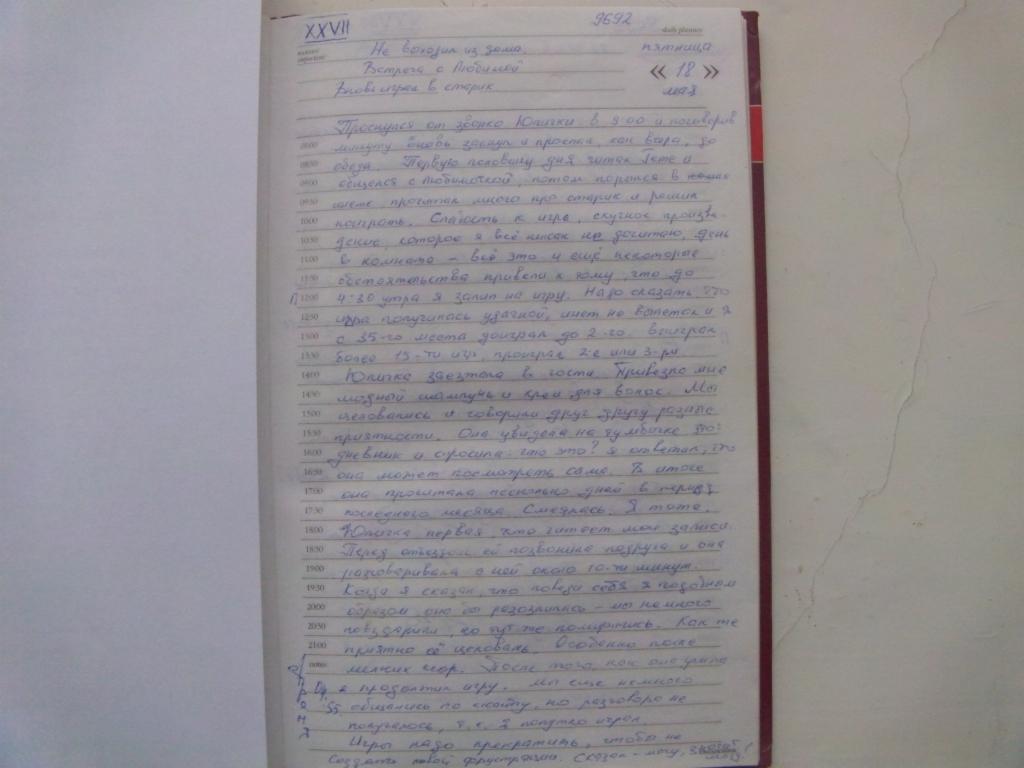 XXVII
9692
daily planner
Не выходил из дома.
пятница
Встреча с Любимой
« 18 »
Вновь играл в старик
мая
Проснулся от звонка Юлички в 9:00 и поговорив
08:00 минуту вновь заснул и проспал, как вчера, до
08:30 обеда. Первую половину дня читал Гете и
09:00 общался с Любимочкой, потом порылся в
09:30 нете, прочитал много про старик и решил
10:00 поиграть. Слабость к игре, скучное произве-
10:30 дение, которое я всё никак не дочитаю, день
11:00 в комнате – всё это и ещё некоторые
11:30 обстоятельства привели к тому, что до
12:00 4:30 утра я залип на игру. Надо сказать что
12:30 игра получилась удачной, инет не вылетал и я
13:00 с 35-го места доиграл до 2-го. Выиграл
13:30 более 15-ти игр, проиграл 2-е или 3-ри.
14:00 Юличка заезжала в гости. Привезла мне
14:30 модный шампунь и крем для волос. Мы
15:00 целовались и говорили друг другу разные
15:30 приятности. Она увидела на тумбочке это:
16:00 дневник и спросила: что это? Я ответил, что
16:30 она может посмотреть сама. В итоге
17:00 она прочитала несколько дней в период
17:30 последнего месяца. Смеялась. Я тоже.
18:00 Юличка первая кто читает мои записи.
18:30 Перед отъездом ей позвонила подруга и она
19:00 разговаривала с ней около 10-ти минут.
19:30 Когда я сказал, что поведи себя я подобным
20:00 образом, она бы разозлилась – мы немного
20:30 повздорили, но тут же помирились. Как же
21:00 приятно её целовать. Особенно после
notes мелких ссор. После того, как она ушла
я продолжил игру. Мы еще немного
общались по скайпу, но разговора не
получилось, т.к. я попутно играл.
Игры надо прекратить, чтобы не
создать новой фрустрации. Сказал –